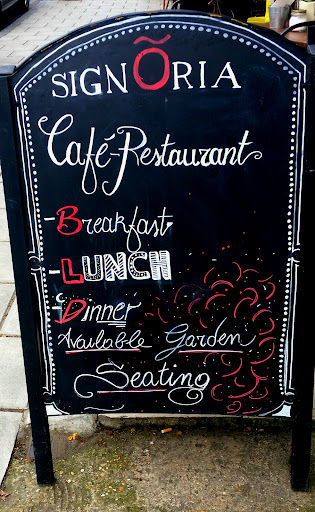 SIGNÕRIA
Café-Restaurant
-Breakfast
-LUNCH
-Dinner
Available Garden
Seating